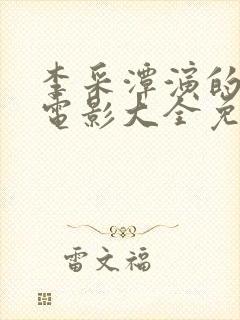 李采潭演的
电影大全免
雷文福